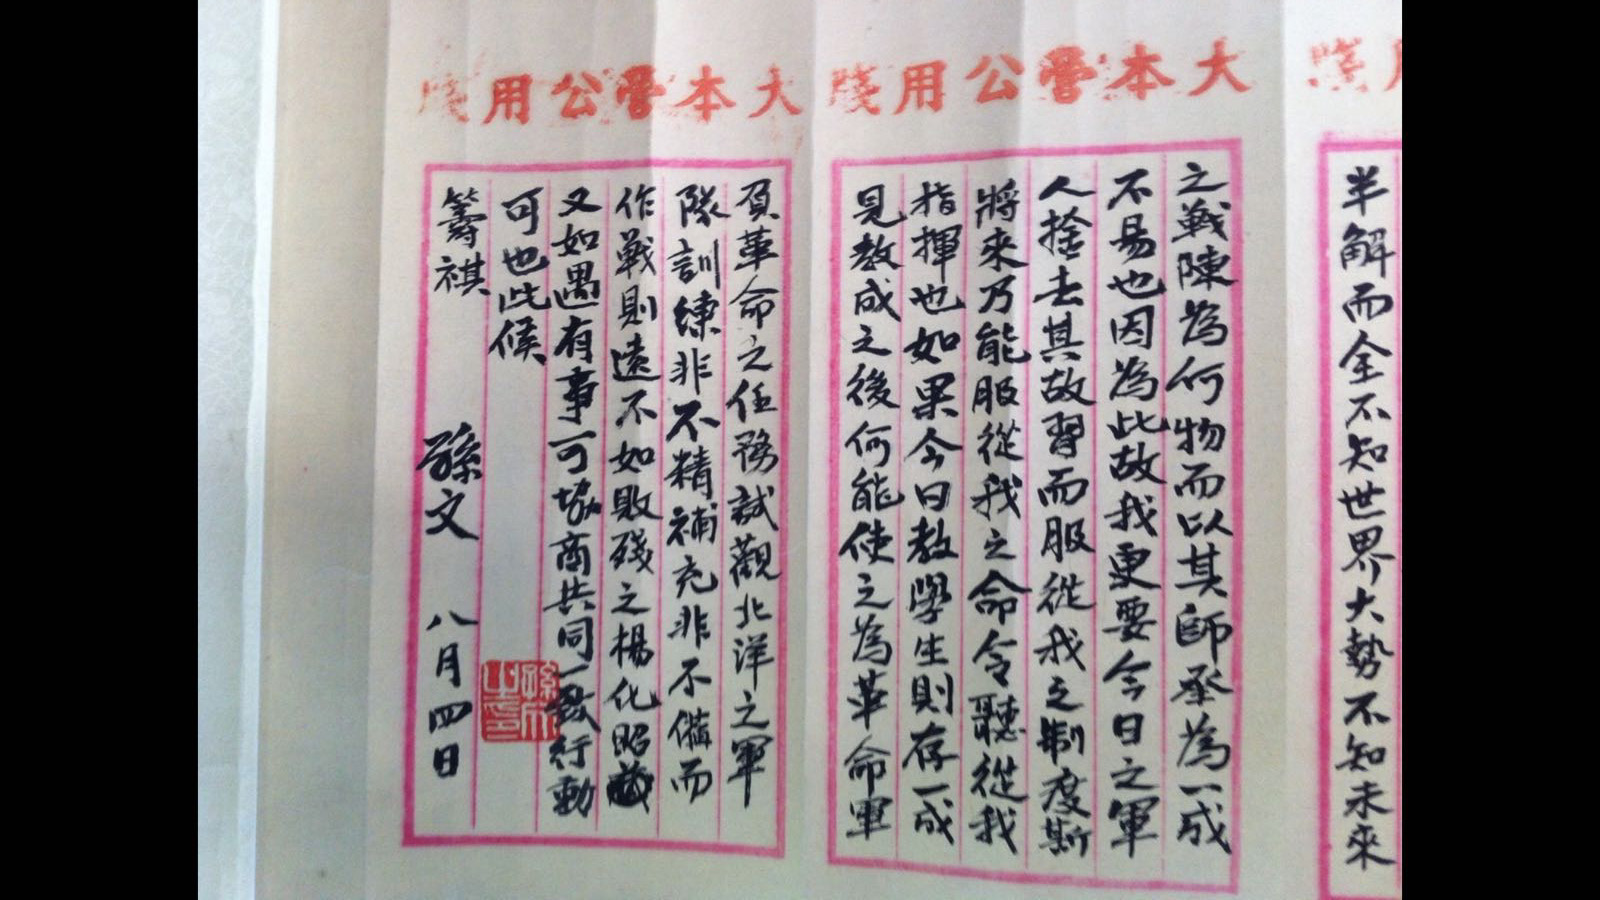 用牋
半解而全不知世界大勢不知未來
大本營公用牋
之戰陳為何物而以其師承為一成
不易也因為此故我更要今日之軍
人捨去其故習而服從我之制度斯
將來乃能服從我之命令聽從我
指揮也如果今日教學生則存一成
見教成之後何能使之為革命軍
大本營公用牋
負革命之任務試觀北洋之軍
隊訓練非不精補充非不備而
作戰則遠不如敗殘之楊化昭
又如遇有事可協商共同一致行動
可也此候
籌祺 孫文 八月四日
孫文之印